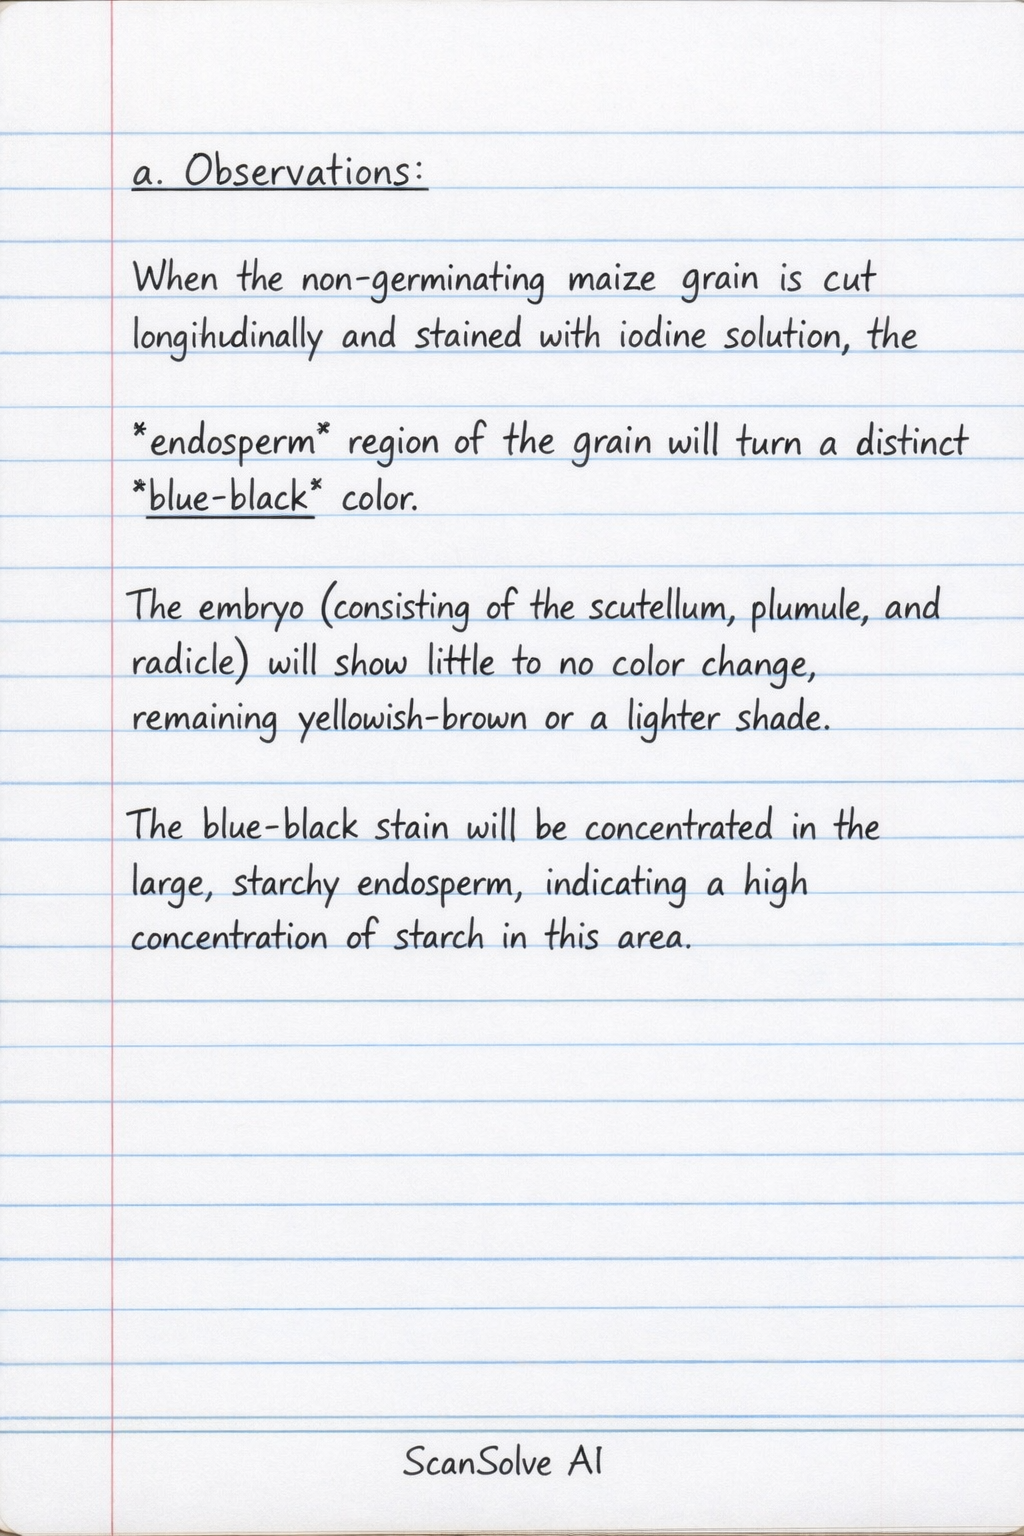 a. Observations:
When the non-germinating maize grain is cut
longihudinally and stained with iodine solution, the
*endosperm* region of the grain will turn a distinct
*blue-black* color.
The embryo (consisting of the scutellum, plumule, and
radicle) will show little to no color change,
remaining yellowish-brown or a lighter shade.
The blue-black stain will be concentrated in the
large, starchy endosperm, indicating a high
concentration of starch in this area.
ScanSolve AI